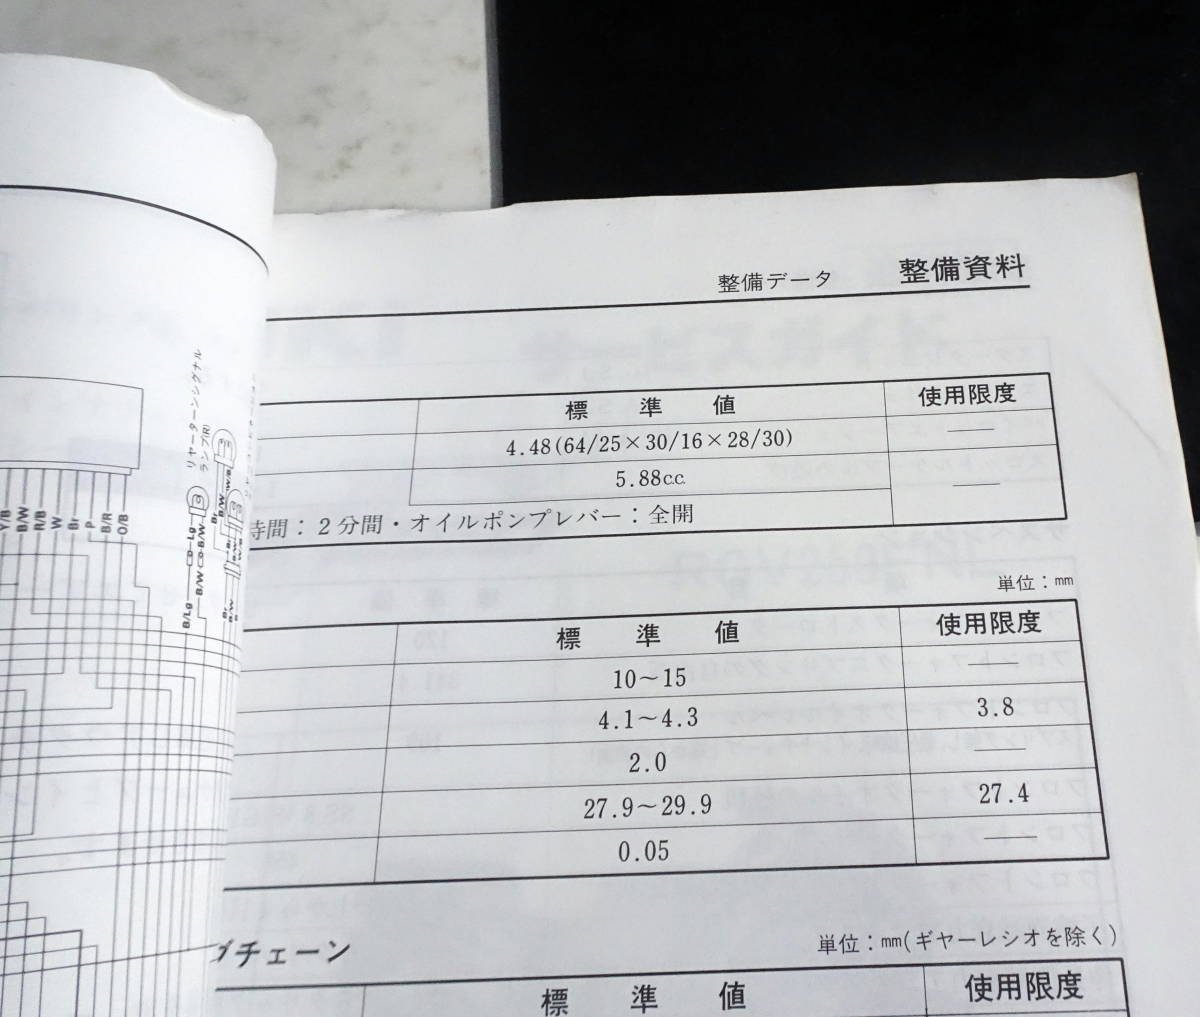 整備データ 整備資料
標 準 値 使用限度
4.48(64/25×30/16×28/30) ——
5.88c.c. ——
時間：２分間・オイルポンプレバー：全開
単位：㎜
標 準 値 使用限度
10～15 ——
4.1～4.3 3.8
2.0 ——
27.9～29.9 27.4
0.05 ——
グチェーン
単位：㎜(ギヤーレシオを除く)
標 準 値 使用限度
リヤーターンシグナル
ランプ(R)
Y/B
B/W
R/B
W
Br
P
B/R
O/B
Lg
B/W
B/Lg
B/W
Br
B/W
Br
B/W